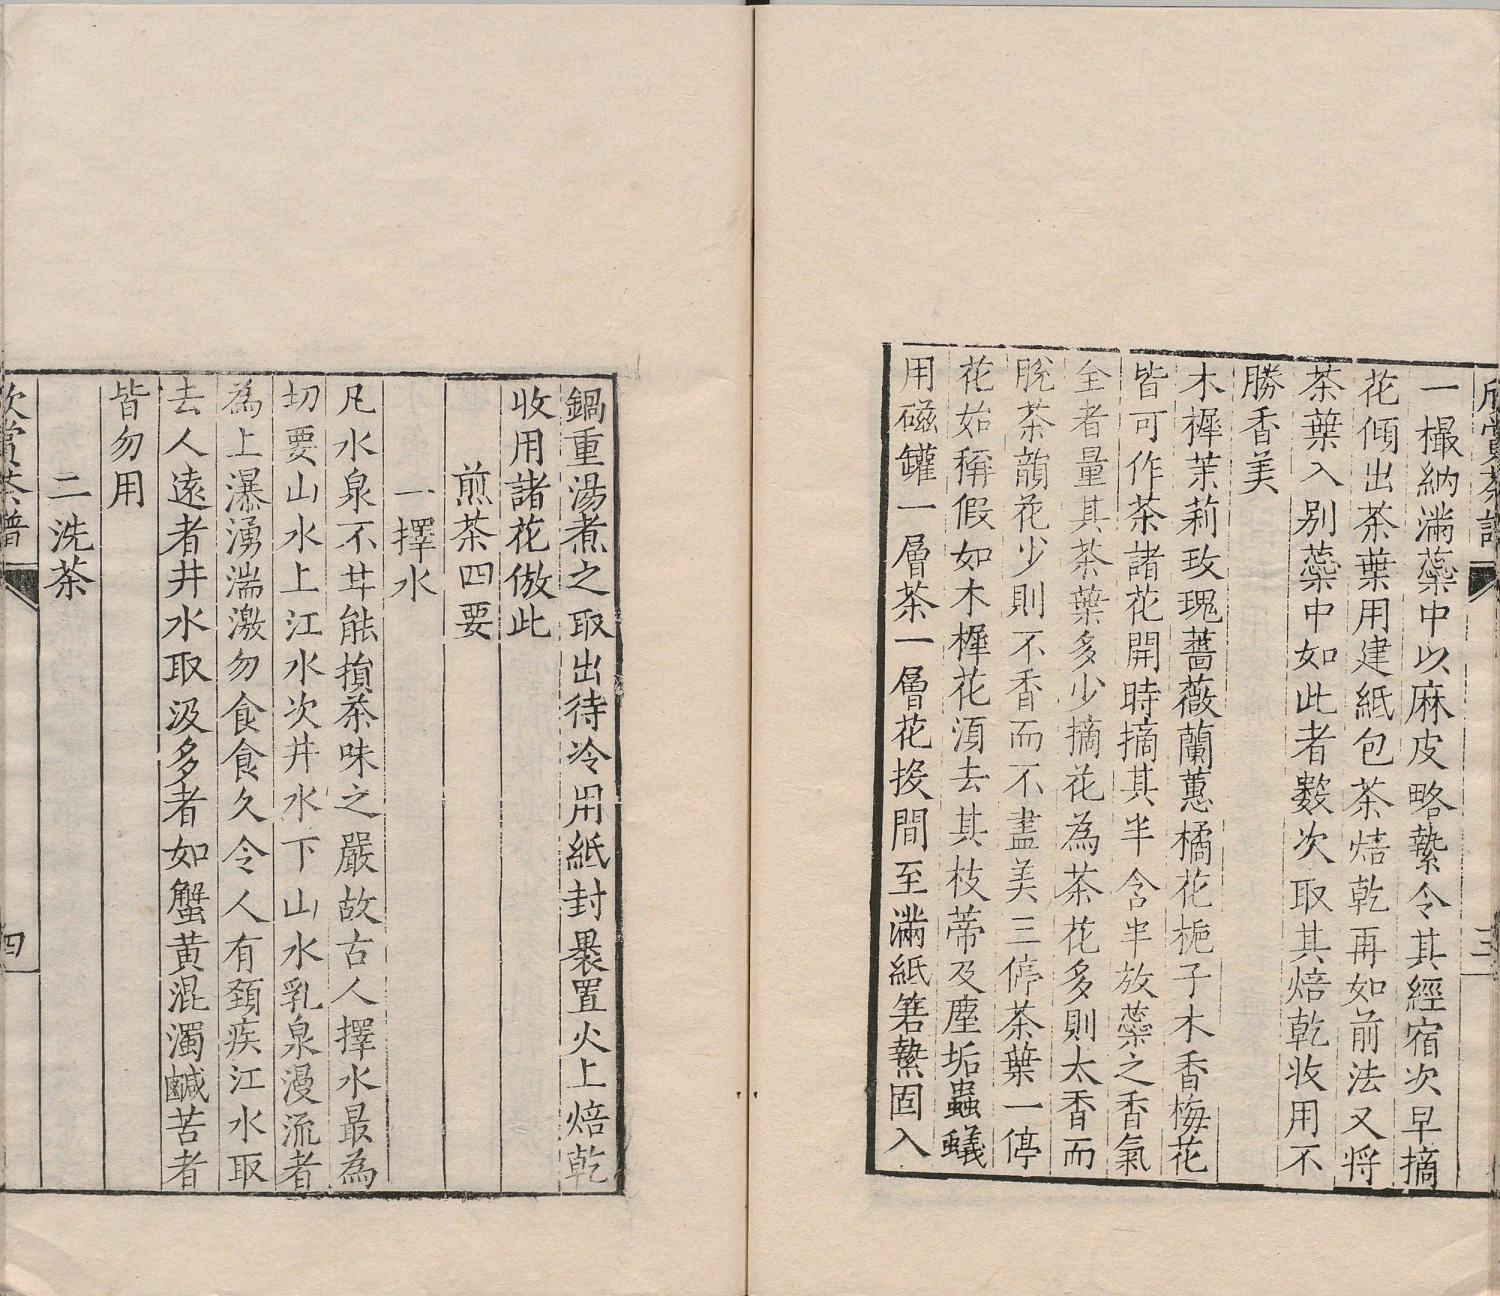 欣賞茶譜
三
一撮納滿蘂中以麻皮略縶令其經宿次早摘
花傾出茶葉用建紙包茶焙乾再如前法又將
茶葉入別蘂中如此者數次取其焙乾收用不
勝香美
木樨茉莉玫瑰薔薇蘭蕙橘花梔子木香梅花
皆可作茶諸花開時摘其半含半放蘂之香氣
全者量其茶葉多少摘花為茶花多則太香而
脫茶韻花少則不香而不盡美三停茶葉一停
花始稱假如木樨花湏去其枝蒂及塵垢蟲蟻
用磁罐一層茶一層花投間至滿紙箬縶固入
鍋重湯煮之取出待冷用紙封裹置火上焙乾
收用諸花倣此
煎茶四要
一擇水
凡水泉不甘能損茶味之嚴故古人擇水最為
切要山水上江水次井水下山水乳泉漫流者
為上瀑湧湍激勿食食久令人有頸疾江水取
去人遠者井水取汲多者如蟹黃混濁鹹苦者
皆勿用
二洗茶
欣賞茶譜
四